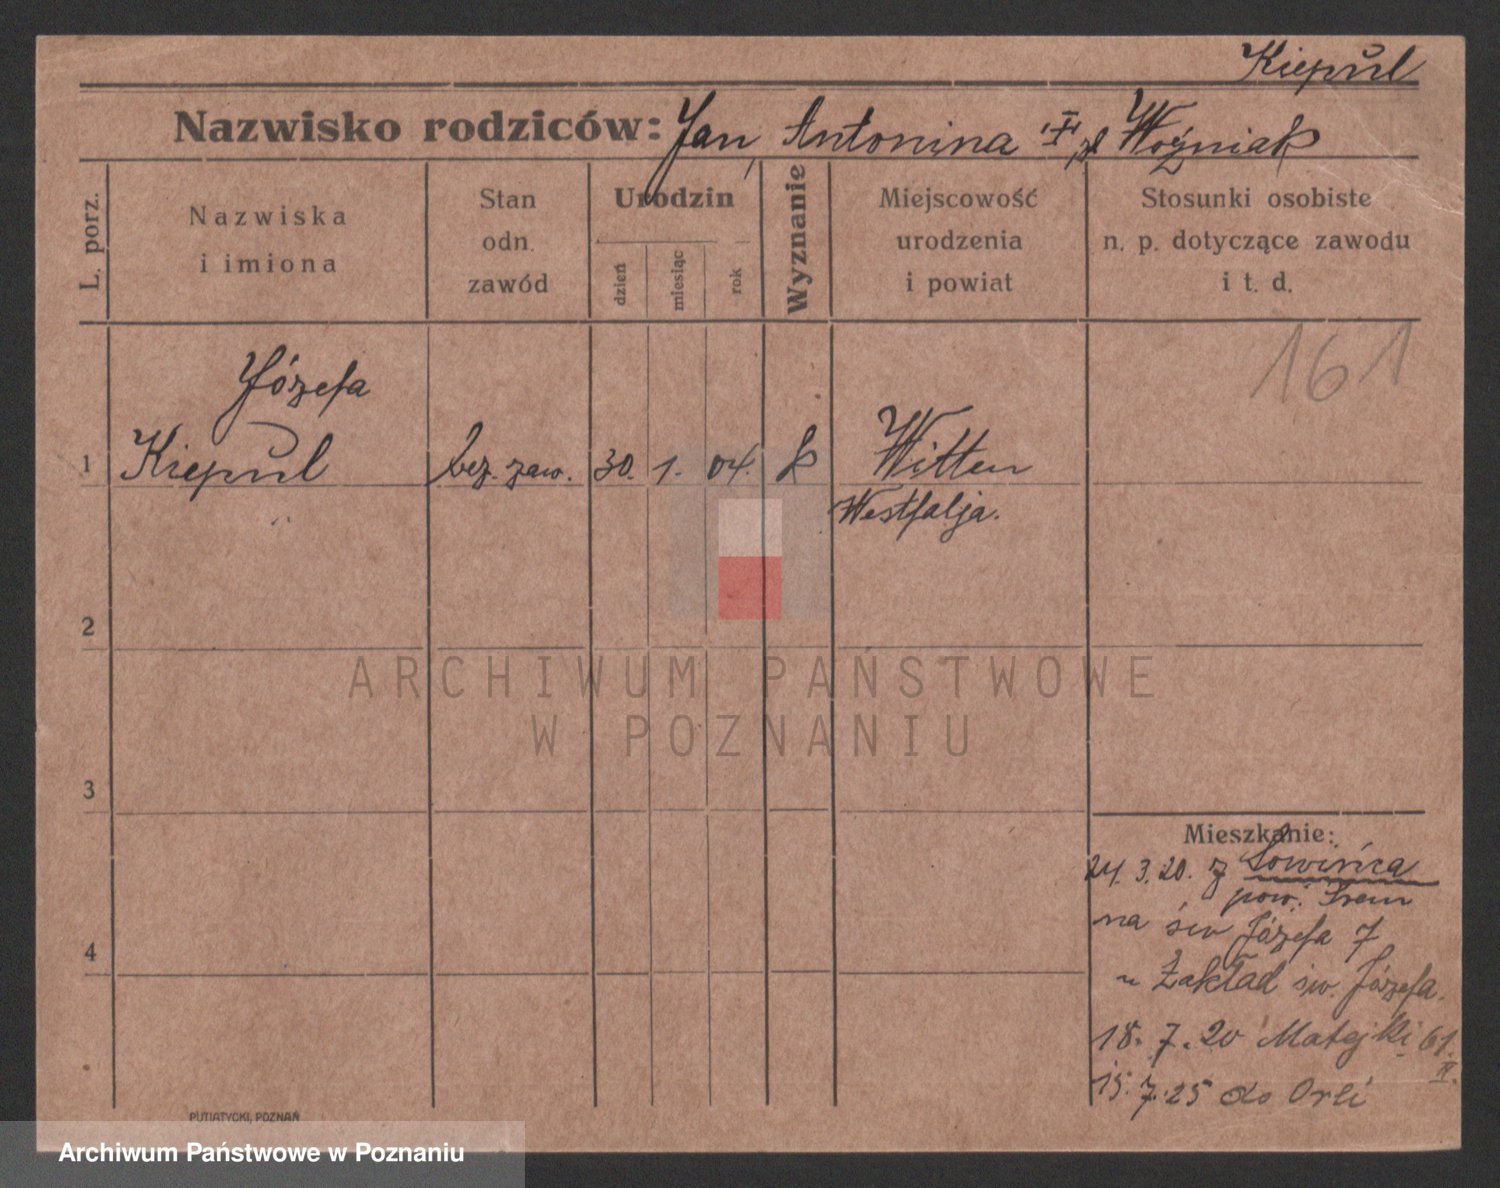 Kiepůl
Nazwisko rodziców: Jan, Antonina z Woźniak
L. porz.
Nazwiska
i imiona
Stan
odn.
zawód
Urodzin
dzień
miesiąc
rok
Wyznanie
Miejscowość
urodzenia
i powiat
Stosunki osobiste
n. p. dotyczące zawodu
i t. d.
161
Józefa
1 Kiepůl bez. zaw. 30. 1. 04. k Witten
Westfalja.
2
ARCHIWUM PAŃSTWOWE
W POZNANIU
3
Mieszkanie:
24. 3. 20. z Sowińca
pow. Śrem
na św Józefa 7
4
Zakład św. Józefa.
18. 7. 20 Matejki 61.
II.
15. 7. 25 do Orli
PUTIATYCKI, POZNAŃ
Archiwum Państwowe w Poznaniu